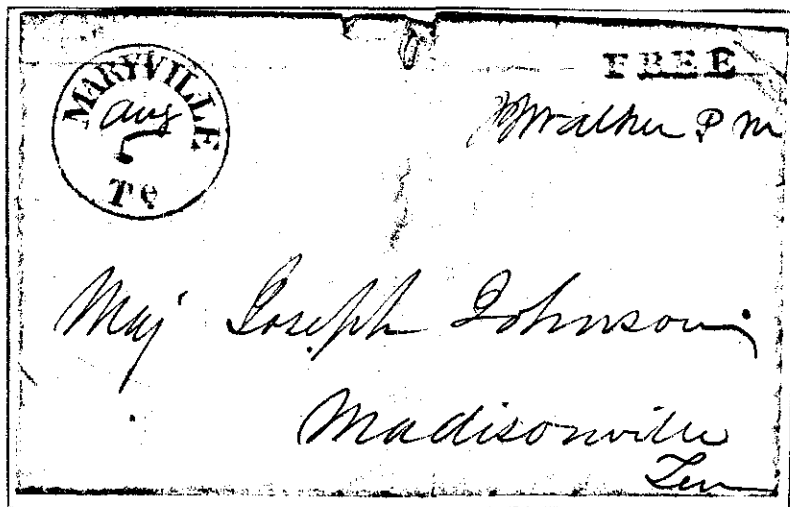 MARYVILLE
Aug
5
Te
FREE
Walker P M
Maj Joseph Johnson
Madisonville
Ten